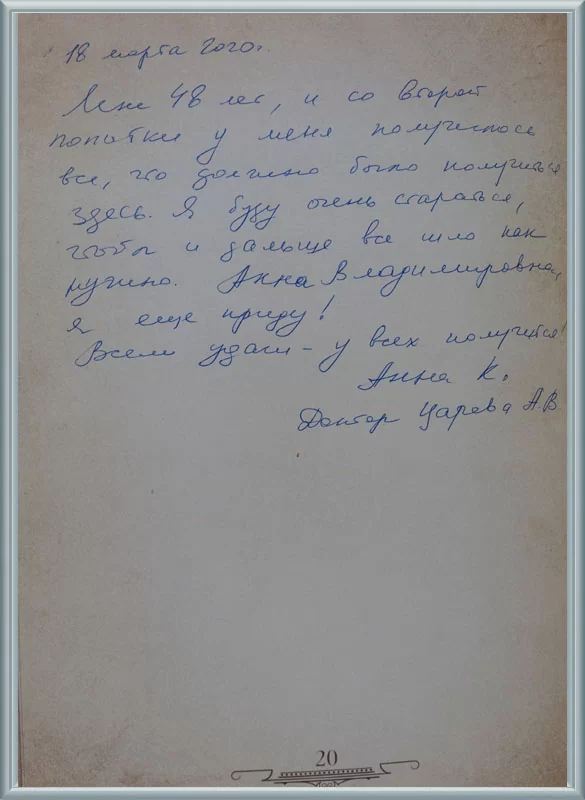 18 марта 2020г.
Мне 48 лет, и со второй
попытки у меня получилось
все, что должно было получиться
здесь. Я буду очень стараться,
чтобы и дальше все шло как
нужно. Анна Владимировна,
я еще приду!
Всем удачи – у всех получится!
Анна К.
Доктор Царева А.В.
20